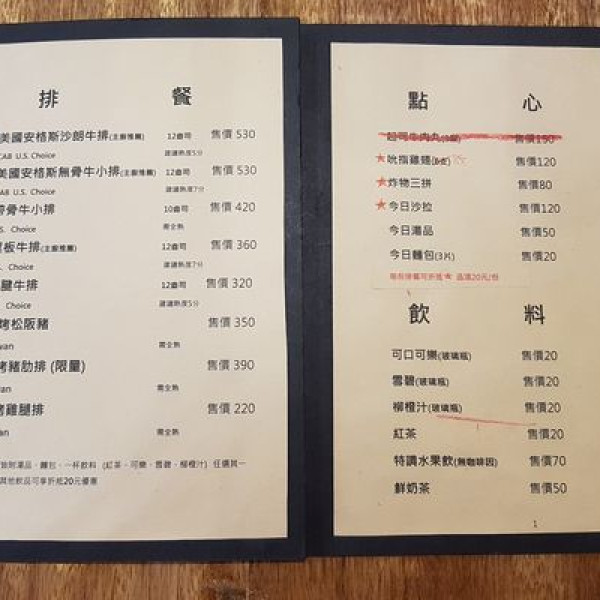 排 餐
美國安格斯沙朗牛排(主廚推薦) 12盎司 售價 530
CAB U.S. Choice 建議熟度5分
美國安格斯無骨牛小排(主廚推薦) 12盎司 售價 530
CAB U.S. Choice 建議熟度7分
帶骨牛小排 10盎司 售價 420
S. Choice 需全熟
板牛排(主廚推薦) 12盎司 售價 360
. Choice 建議熟度7分
腱牛排 12盎司 售價 320
Choice 建議熟度5分
烤松阪豬 售價 350
wan 需全熟
烤豬肋排 (限量) 售價 390
wan 需全熟
烤雞腿排 售價 220
wan 需全熟
附湯品、麵包、一杯飲料 (紅茶、可樂、雪碧、柳橙汁) 任選其一
其他飲品可享折抵20元優惠
點 心
起司牛肉丸 售價150
★吮指雞翅 售價120
★炸物三拼 售價80
★今日沙拉 售價120
今日湯品 售價50
今日麵包(3片) 售價20
飲 料
可口可樂(玻璃瓶) 售價20
雪碧(玻璃瓶) 售價20
柳橙汁(玻璃瓶) 售價20
紅茶 售價20
特調水果飲(無咖啡因) 售價70
鮮奶茶 售價50
1